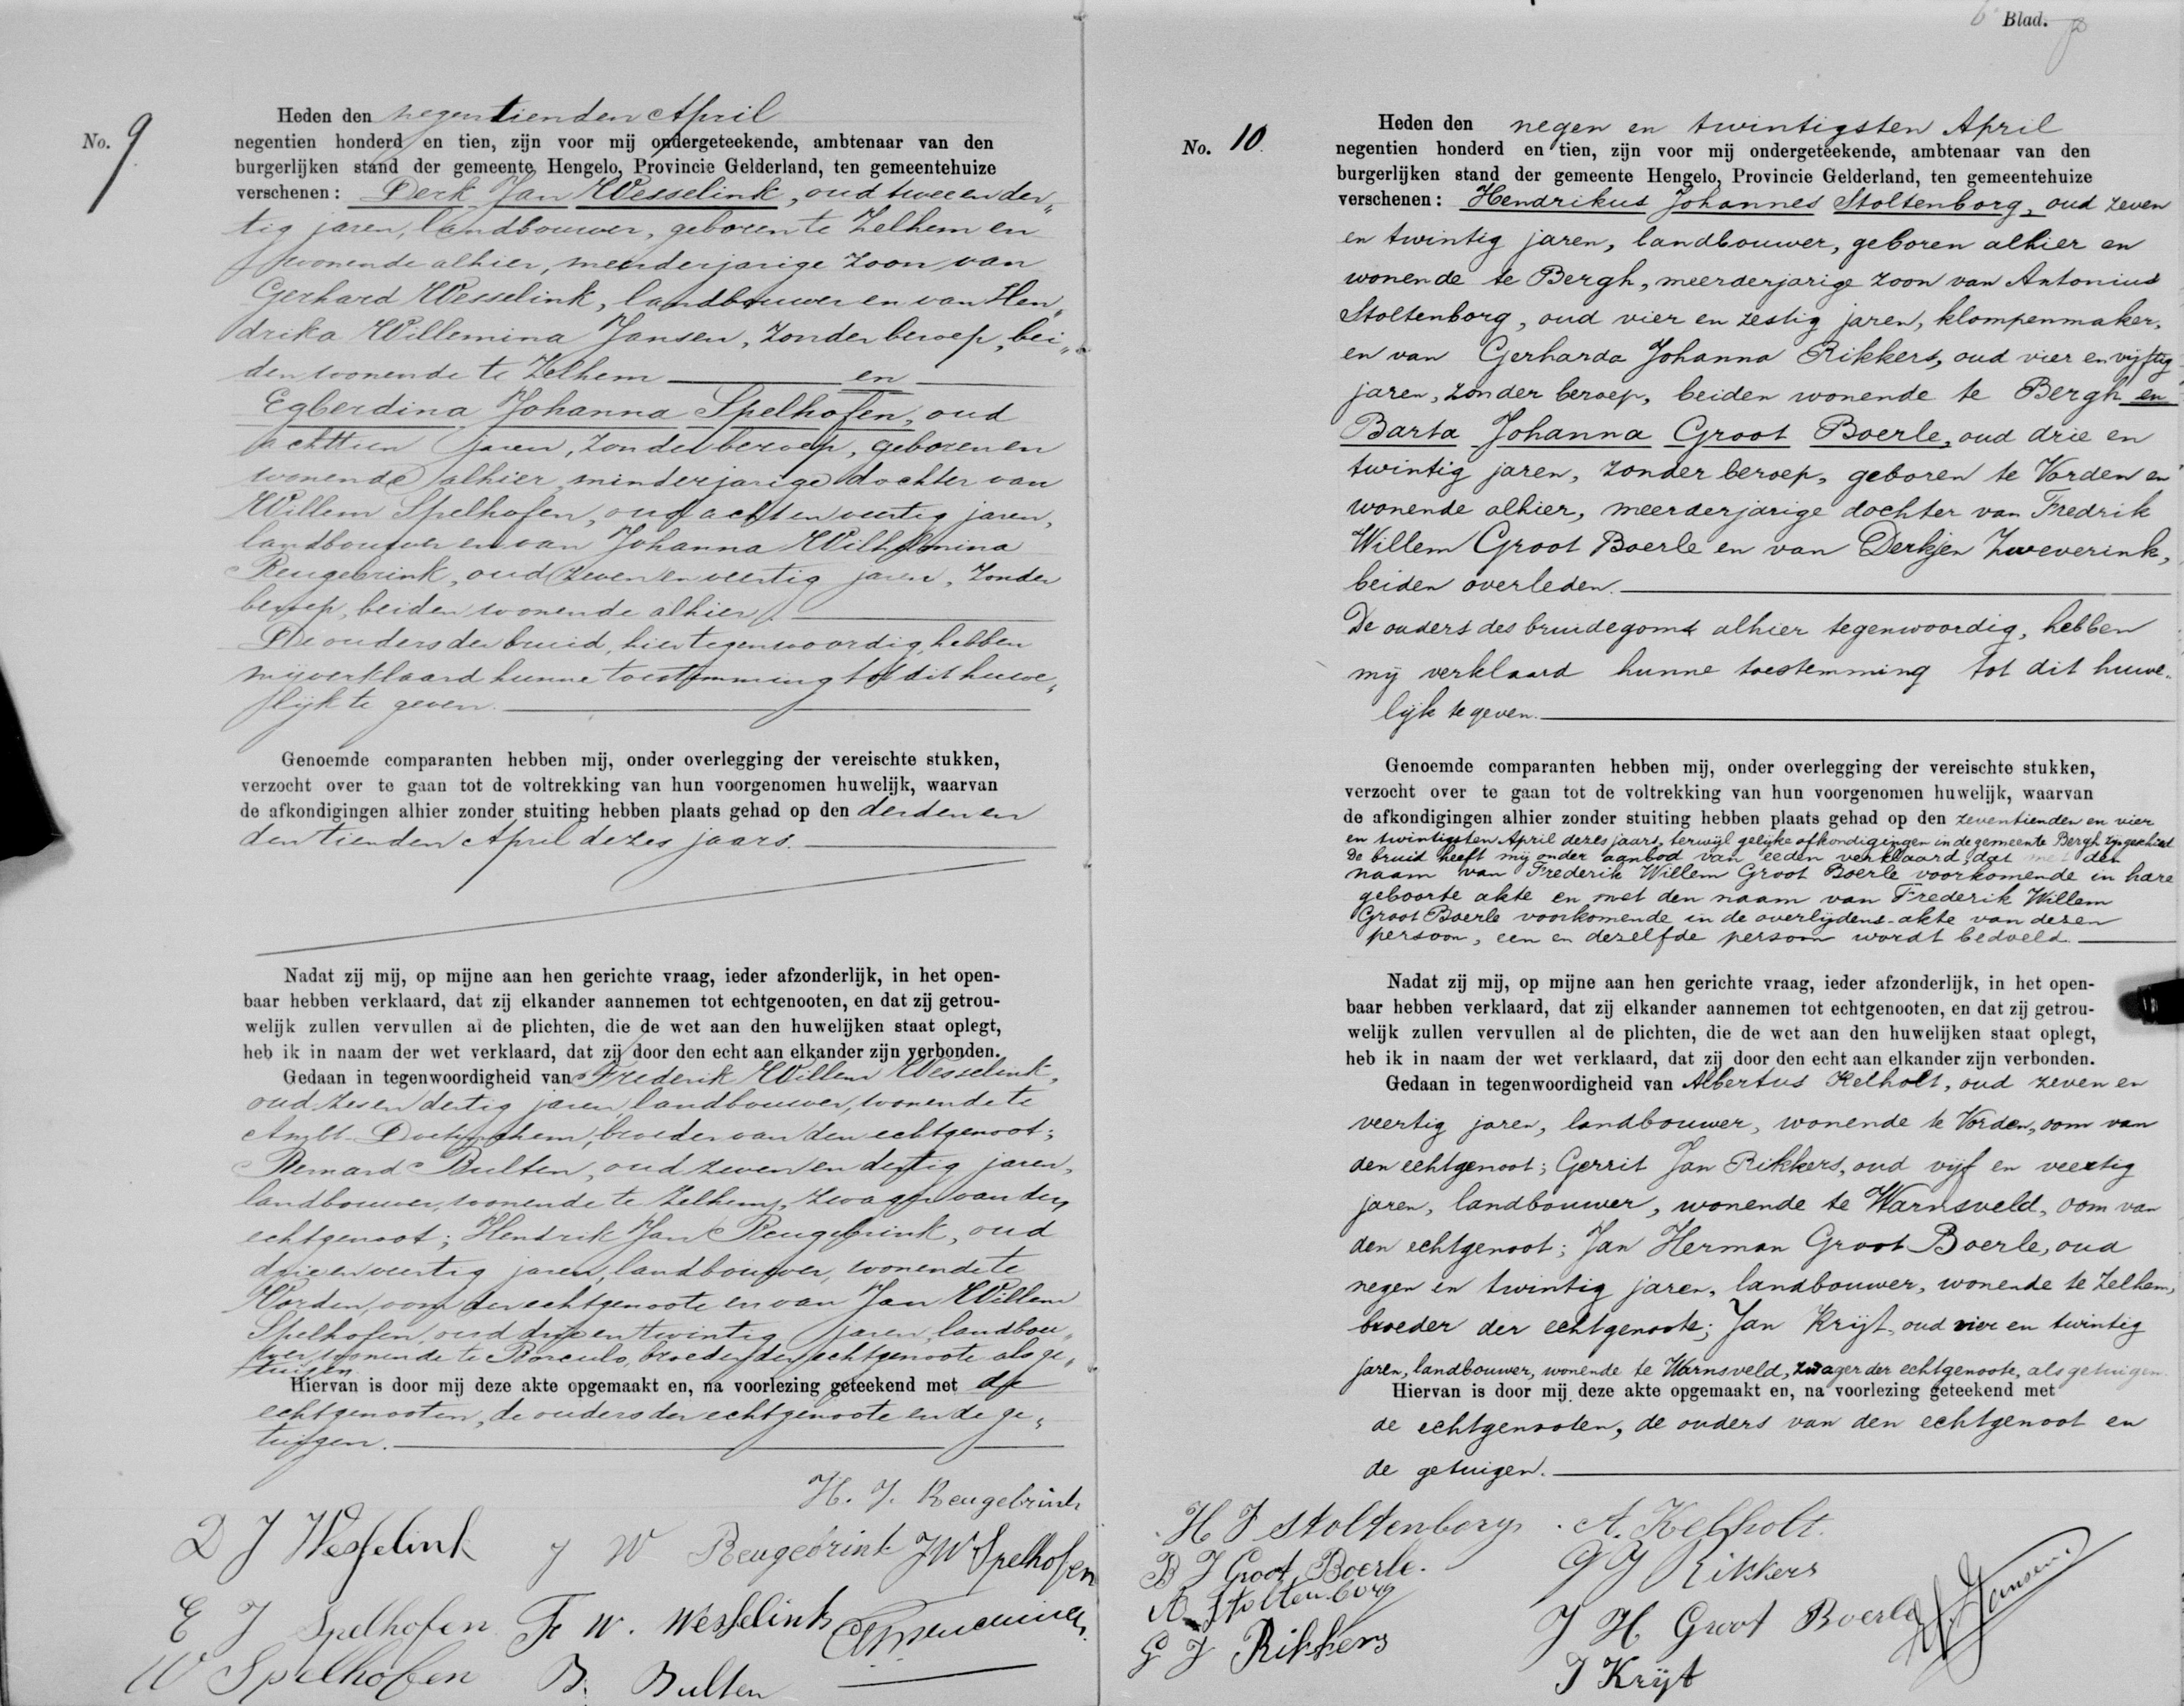 No. 9
Heden den negentienden April
negentien honderd en tien, zijn voor mij ondergeteekende, ambtenaar van den
burgerlijken stand der gemeente Hengelo, Provincie Gelderland, ten gemeentehuize
verschenen: Derk Jan Wesselink, oud twee en der„
tig jaren, landbouwer, geboren te Zelhem en
wonende alhier, meerderjarige zoon van
Gerhard Wesselink, landbouwer en van Hen„
drika Willemina Jansen, zonder beroep, bei„
den wonende te Zelhem en
Egberdina Johanna Spelhofen, oud
achttien jaren, zonder beroep, geboren en
wonende alhier, minderjarige dochter van
Willem Spelhofen, oud acht en veertig jaren,
landbouwer en van Johanna Wilhelmina
Reugebrink, oud zeven en veertig jaren, zonder
beroep, beiden wonende alhier.
De ouders der bruid, hier tegenwoordig, hebben
mij verklaard hunne toestemming tot dit huwe„
lijk te geven.
Genoemde comparanten hebben mij, onder overlegging der vereischte stukken,
verzocht over te gaan tot de voltrekking van hun voorgenomen huwelijk, waarvan
de afkondigingen alhier zonder stuiting hebben plaats gehad op den derden en
den tienden April dezes jaars.
Nadat zij mij, op mijne aan hen gerichte vraag, ieder afzonderlijk, in het open-
baar hebben verklaard, dat zij elkander aannemen tot echtgenooten, en dat zij getrou-
welijk zullen vervullen al de plichten, die de wet aan den huwelijken staat oplegt,
heb ik in naam der wet verklaard, dat zij door den echt aan elkander zijn verbonden.
Gedaan in tegenwoordigheid van Frederik Willem Wesselink,
oud zes en dertig jaren, landbouwer, wonende te
Ambt-Doetinchem, broeder van den echtgenoot;
Bernard Bulten, oud zeven en dertig jaren,
landbouwer, wonende te Zelhem, zwager van den
echtgenoot; Hendrik Jan Reugebrink, oud
drie en veertig jaren, landbouwer, wonende te
Vorden, oom der echtgenoote en van Jan Willem
Spelhofen, oud drie en twintig jaren, landbou„
wer, wonende te Borculo, broeder der echtgenoote als ge„
tuigen.
Hiervan is door mij deze akte opgemaakt en, na voorlezing geteekend met de
echtgenooten, de ouders der echtgenoote en de ge„
tuigen.
H. J. Reugebrink
D J Wesselink J W Reugebrink JW Spelhofen
E J Spelhofen Fr W. Wesselink
W Spelhofen B. Bulten
Blad.
No. 10.
Heden den negen en twintigsten April
negentien honderd en tien, zijn voor mij ondergeteekende, ambtenaar van den
burgerlijken stand der gemeente Hengelo, Provincie Gelderland, ten gemeentehuize
verschenen: Hendrikus Johannes Stoltenborg, oud zeven
en twintig jaren, landbouwer, geboren alhier en
wonende te Bergh, meerderjarige zoon van Antonius
Stoltenborg, oud vier en zestig jaren, klompenmaker,
en van Gerharda Johanna Rikkers, oud vier en vijftig
jaren, zonder beroep, beiden wonende te Bergh en
Barta Johanna Groot Boerle, oud drie en
twintig jaren, zonder beroep, geboren te Vorden en
wonende alhier, meerderjarige dochter van Fredrik
Willem Groot Boerle en van Derkjen Zweverink,
beiden overleden.
De ouders des bruidegoms alhier tegenwoordig, hebben
mij verklaard hunne toestemming tot dit huwe„
lijk te geven.
Genoemde comparanten hebben mij, onder overlegging der vereischte stukken,
verzocht over te gaan tot de voltrekking van hun voorgenomen huwelijk, waarvan
de afkondigingen alhier zonder stuiting hebben plaats gehad op den zeventienden en vier
en twintigsten April dezes jaars, terwijl gelijke afkondigingen in de gemeente Bergh zijn geschied
De bruid heeft mij onder aanbod van eeden verklaard, dat met den
naam van Frederik Willem Groot Boerle voorkomende in hare
geboorte akte en met den naam van Frederik Willem
Groot Boerle voorkomende in de overlijdens-akte van dezen
persoon, een en dezelfde persoon wordt bedoeld.
Nadat zij mij, op mijne aan hen gerichte vraag, ieder afzonderlijk, in het open-
baar hebben verklaard, dat zij elkander aannemen tot echtgenooten, en dat zij getrou-
welijk zullen vervullen al de plichten, die de wet aan den huwelijken staat oplegt,
heb ik in naam der wet verklaard, dat zij door den echt aan elkander zijn verbonden.
Gedaan in tegenwoordigheid van Albertus Kelholt, oud zeven en
veertig jaren, landbouwer, wonende te Vorden, oom van
den echtgenoot; Gerrit Jan Rikkers, oud vijf en veertig
jaren, landbouwer, wonende te Warnsveld, oom van
den echtgenoot; Jan Herman Groot Boerle, oud
negen en twintig jaren, landbouwer, wonende te Zelhem,
broeder der echtgenoote; Jan Krijt, oud vier en twintig
jaren, landbouwer, wonende te Warnsveld, zwager der echtgenoote, als getuigen.
Hiervan is door mij deze akte opgemaakt en, na voorlezing geteekend met
de echtgenooten, de ouders van den echtgenoot en
de getuigen.
H J Stoltenborg A. Kelholt.
B J Groot Boerle. G J Rikkers
A Stoltenborg J H Groot Boerle Jansen
G J Rikkers J Krijt